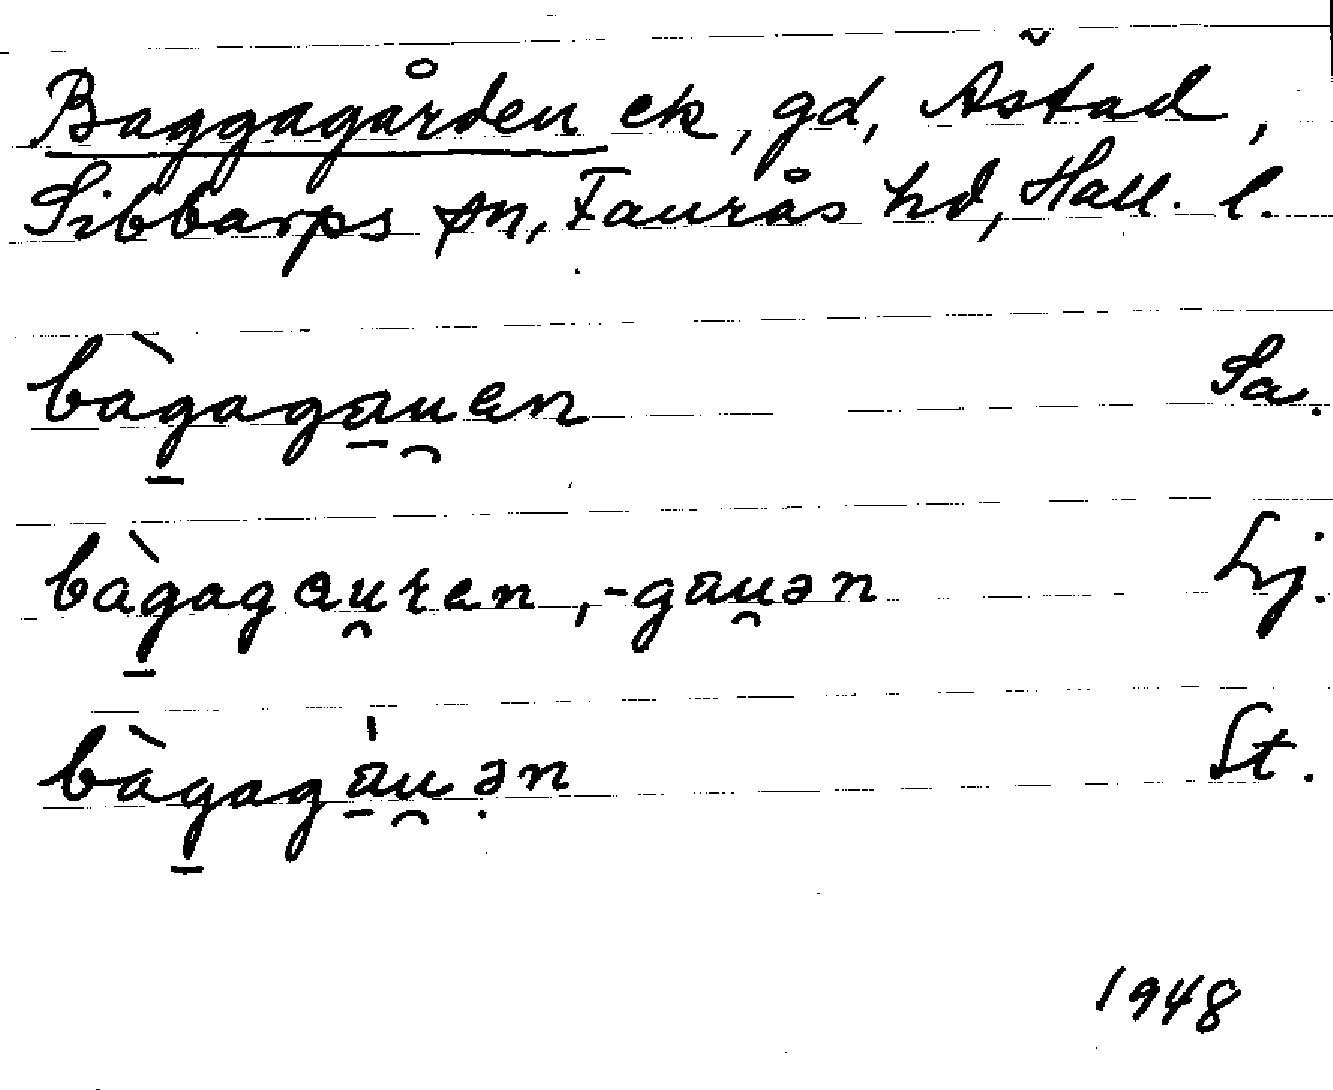 Baggagården ek, gd, Åstad,
Sibbarps sn, Faurås hd, Hall. l.
bàg̱aga̱u̯en Sa.
bàg̱agau̯ren, -gau̯ən Lj.
bàg̱aga̱̍u̯ə̣n St.
1948